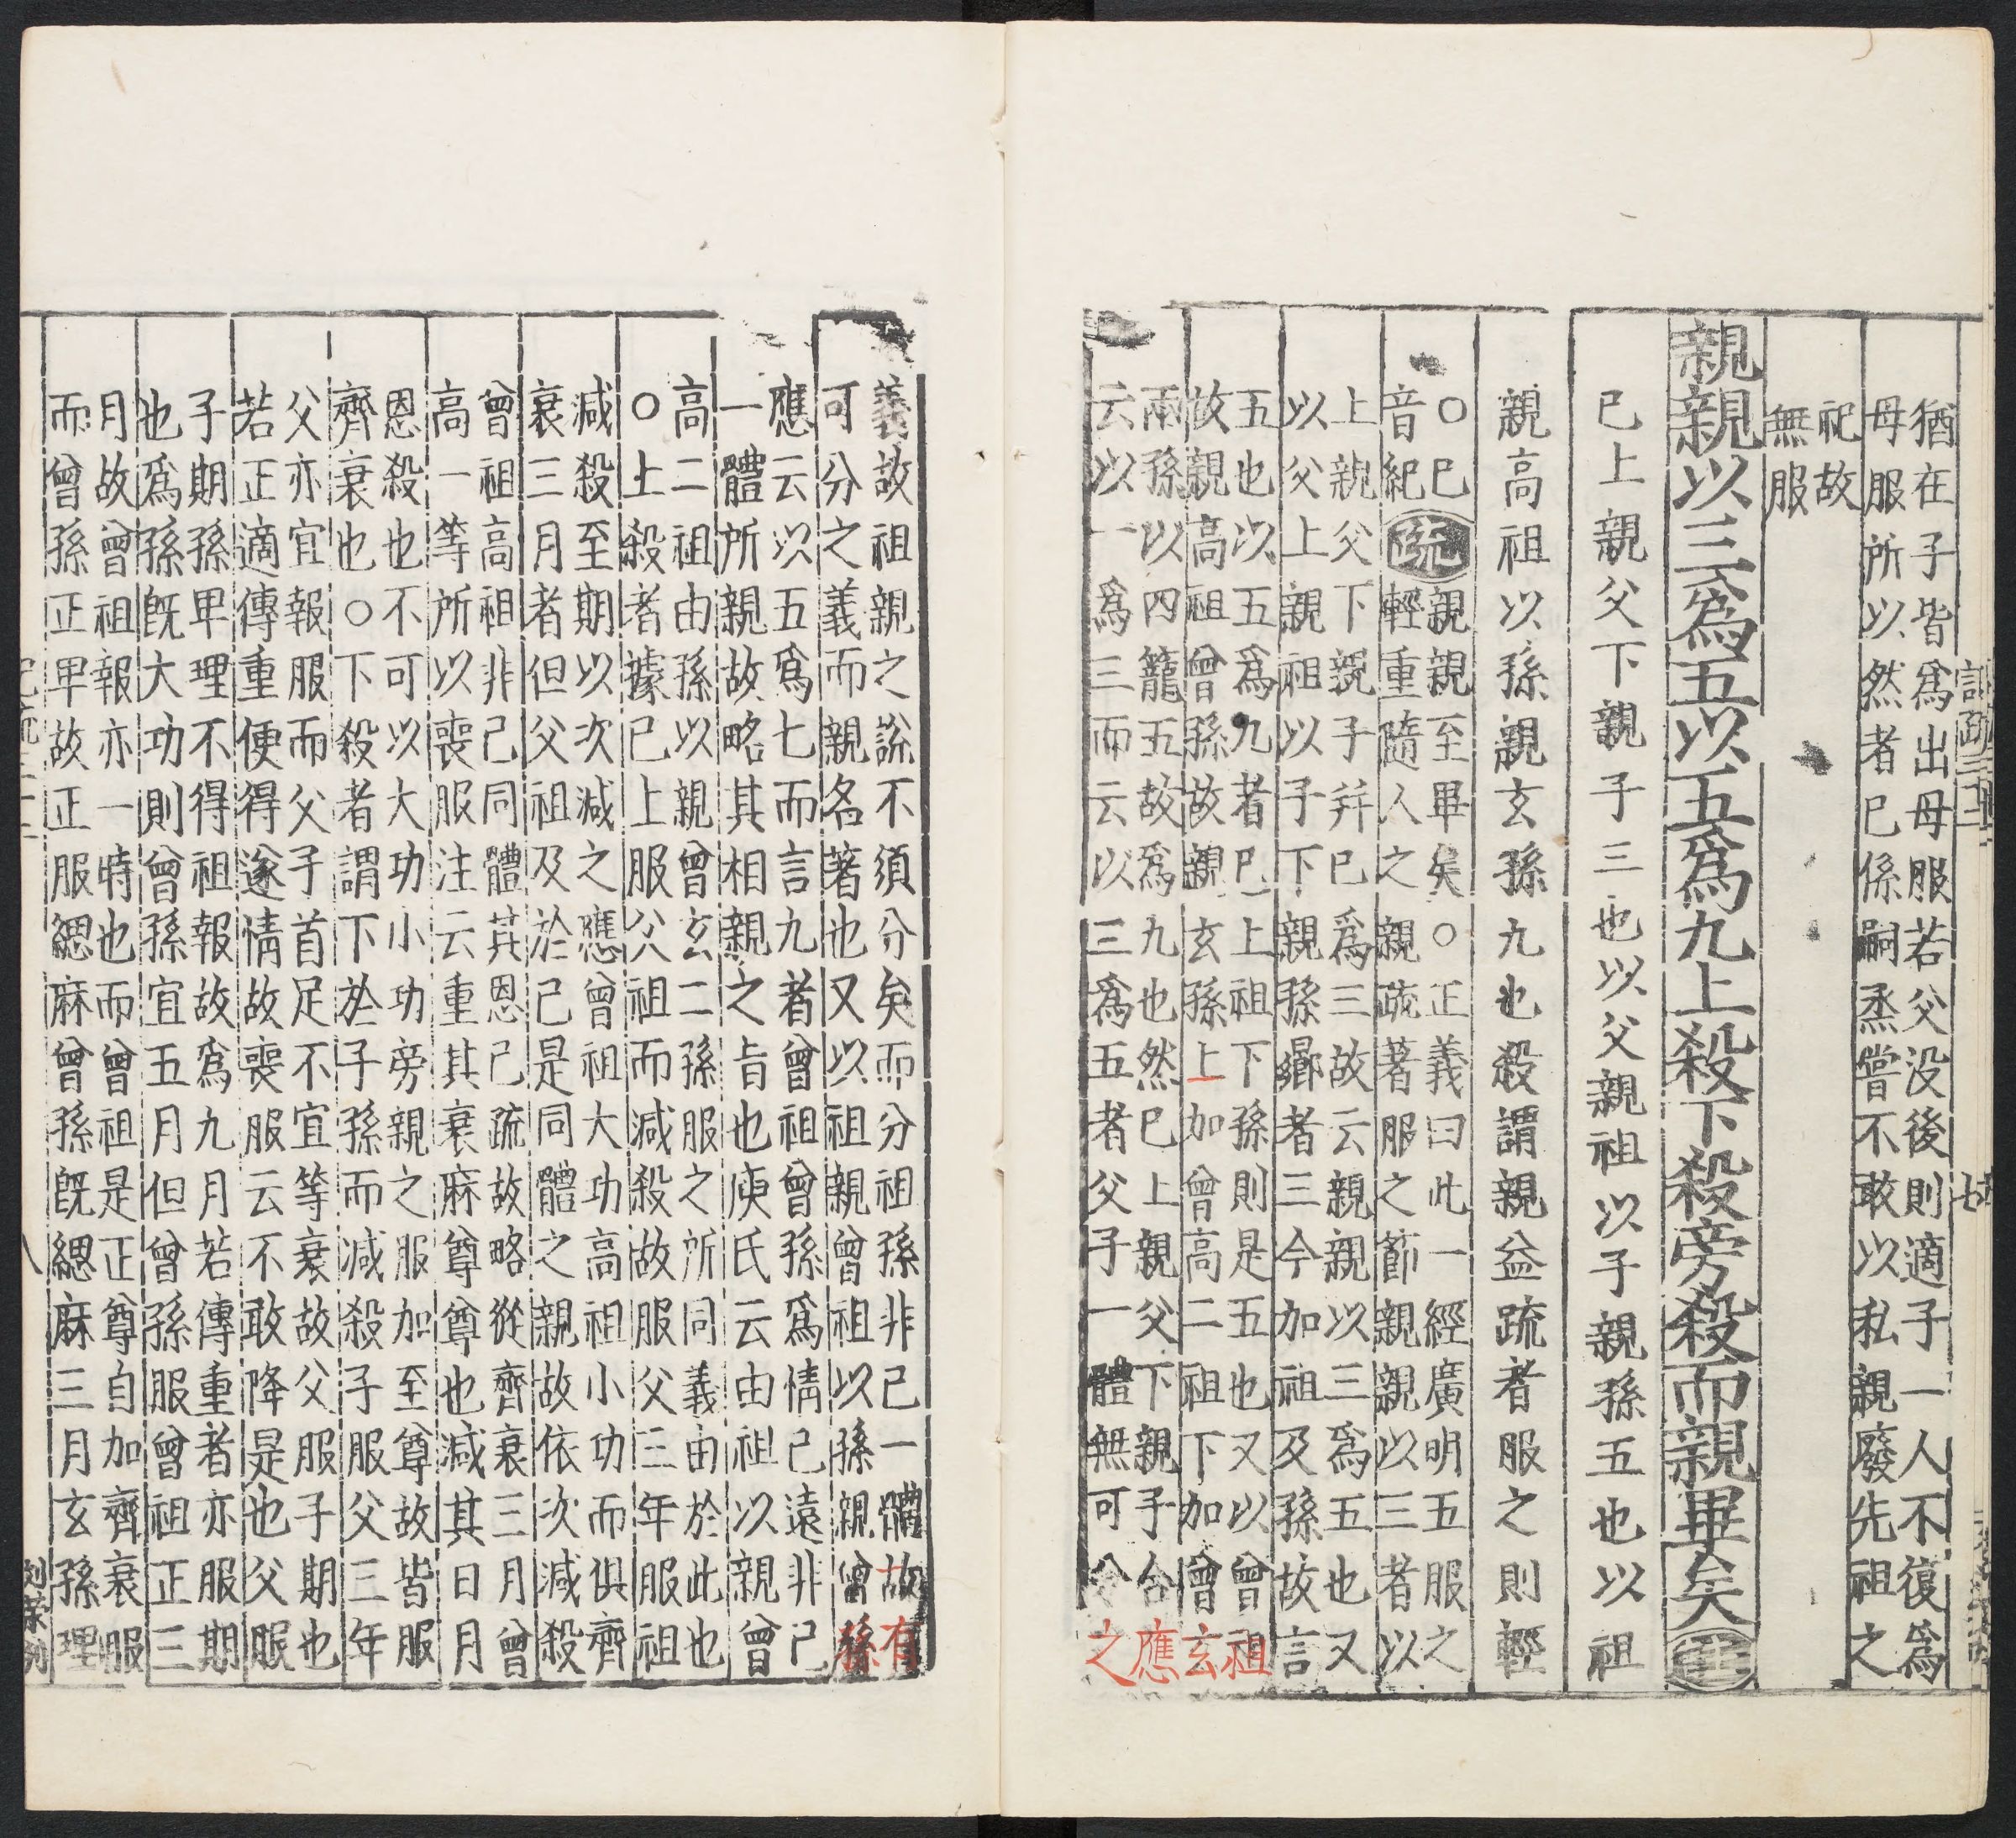 猶在子皆爲出母服若父没後則適子一人不復爲
母服所以然者已係嗣烝嘗不敢以私親廢先祖之
祀故
無服
親親以三爲五以五爲九上殺下殺旁殺而親畢矣
已上親父下親子三也以父親祖以子親孫五也以祖
親高祖以孫親玄孫九也殺謂親益疏者服之則輕
○已
音紀
疏
親親至畢矣○正義曰此一經廣明五服之
輕重隨人之親疏著服之節親親以三者以
上親父下親子并已爲三故云親親以三爲五也又
以父上親祖以子下親孫曏者三今加祖及孫故言
五也以五爲九者已上祖下孫則是五也又以曾祖
故親高祖曾孫故親玄孫上加曾高二祖下加曾玄
兩孫以四籠五故爲九也然已上親父下親子合應
云以一爲三而云以三爲五者父子一體無可分之
義故祖親之說不須分矣而分祖孫非已一體故有
可分之義而親名著也又以祖親曾祖以孫親曾孫
應云以五爲七而言九者曾祖曾孫爲情已遠非已
一體所親故略其相親之旨也庾氏云由祖以親曾
高二祖由孫以親曾玄二孫服之所同義由於此也
○上殺者據已上服父祖而減殺故服父三年服祖
減殺至期以次減之應曾祖大功高祖小功而俱齊
衰三月者但父祖及於己是同體之親故依次減殺
曾祖高祖非己同體其恩己疏故略從齊衰三月曾
高一等所以喪服注云重其衰麻尊尊也減其日月
恩殺也不可以大功小功旁親之服加至尊故皆服
齊衰也○下殺者謂下於子孫而減殺子服父三年
父亦宜報服而父子首足不宜等衰故父服子期也
若正適傳重便得遂情故喪服云不敢降是也父服
子期孫卑理不得祖報故爲九月若傳重者亦服期
也爲孫旣大功則曾孫宜五月但曾孫服曾祖正三
月故曾祖報亦一時也而曾祖是正尊自加齊衰服
而曾孫正卑故正服緦麻曾孫旣緦麻三月玄孫理
八